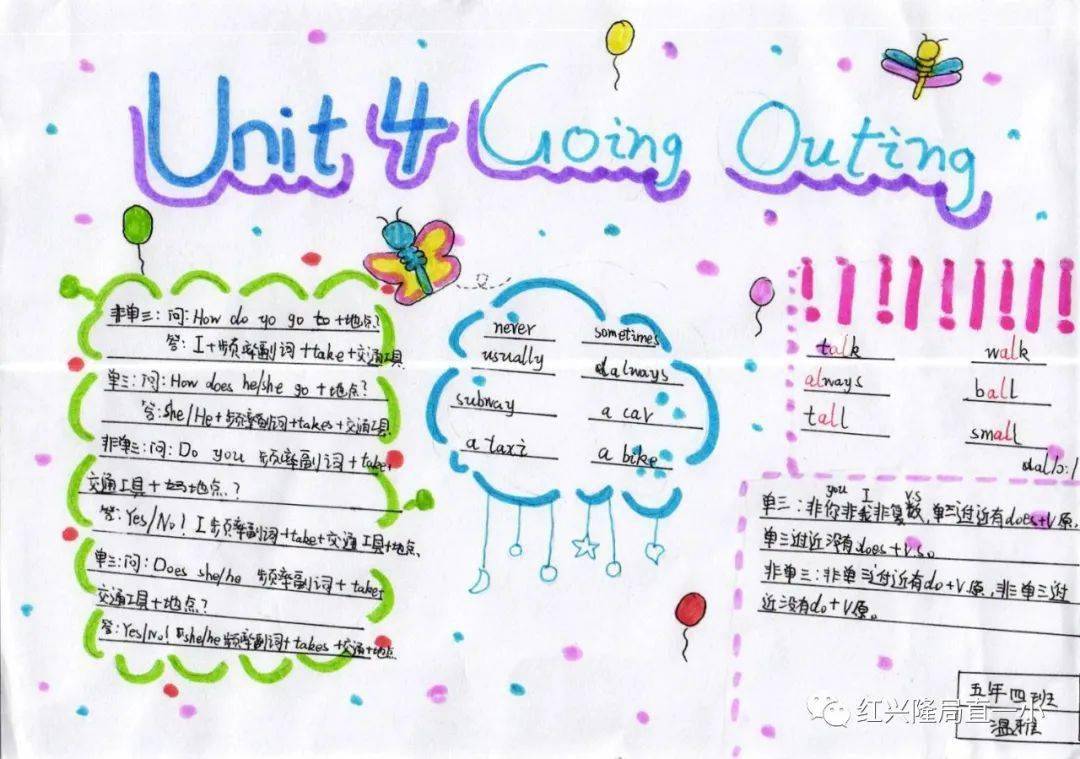 Unit 4 Going Outing
非单三:问:How do yo go to +地点?
答:I+频率副词+take+交通工具
单三:问:How does he/she go +地点?
答:She/He+频率副词+takes+交通工具
非单三:问:Do you 频率副词+take+
交通工具+to地点?
答:Yes/No! I 频率副词+take+交通工具+地点.
单三:问:Does she/he 频率副词+take+
交通工具+地点?
答:Yes/No! she/he 频率副词+takes +交通+地点
never sometimes
usually always
subway a car
a taxi a bike
talk walk
always ball
tall small
you I vs
单三:非你非我非复数,单三附近有does+V原,
单三附近没有does+vs。
非单三:非单三附近有do+V原,非单三附
近没有do+V原。
五年四班
温雅
红兴隆局直一小